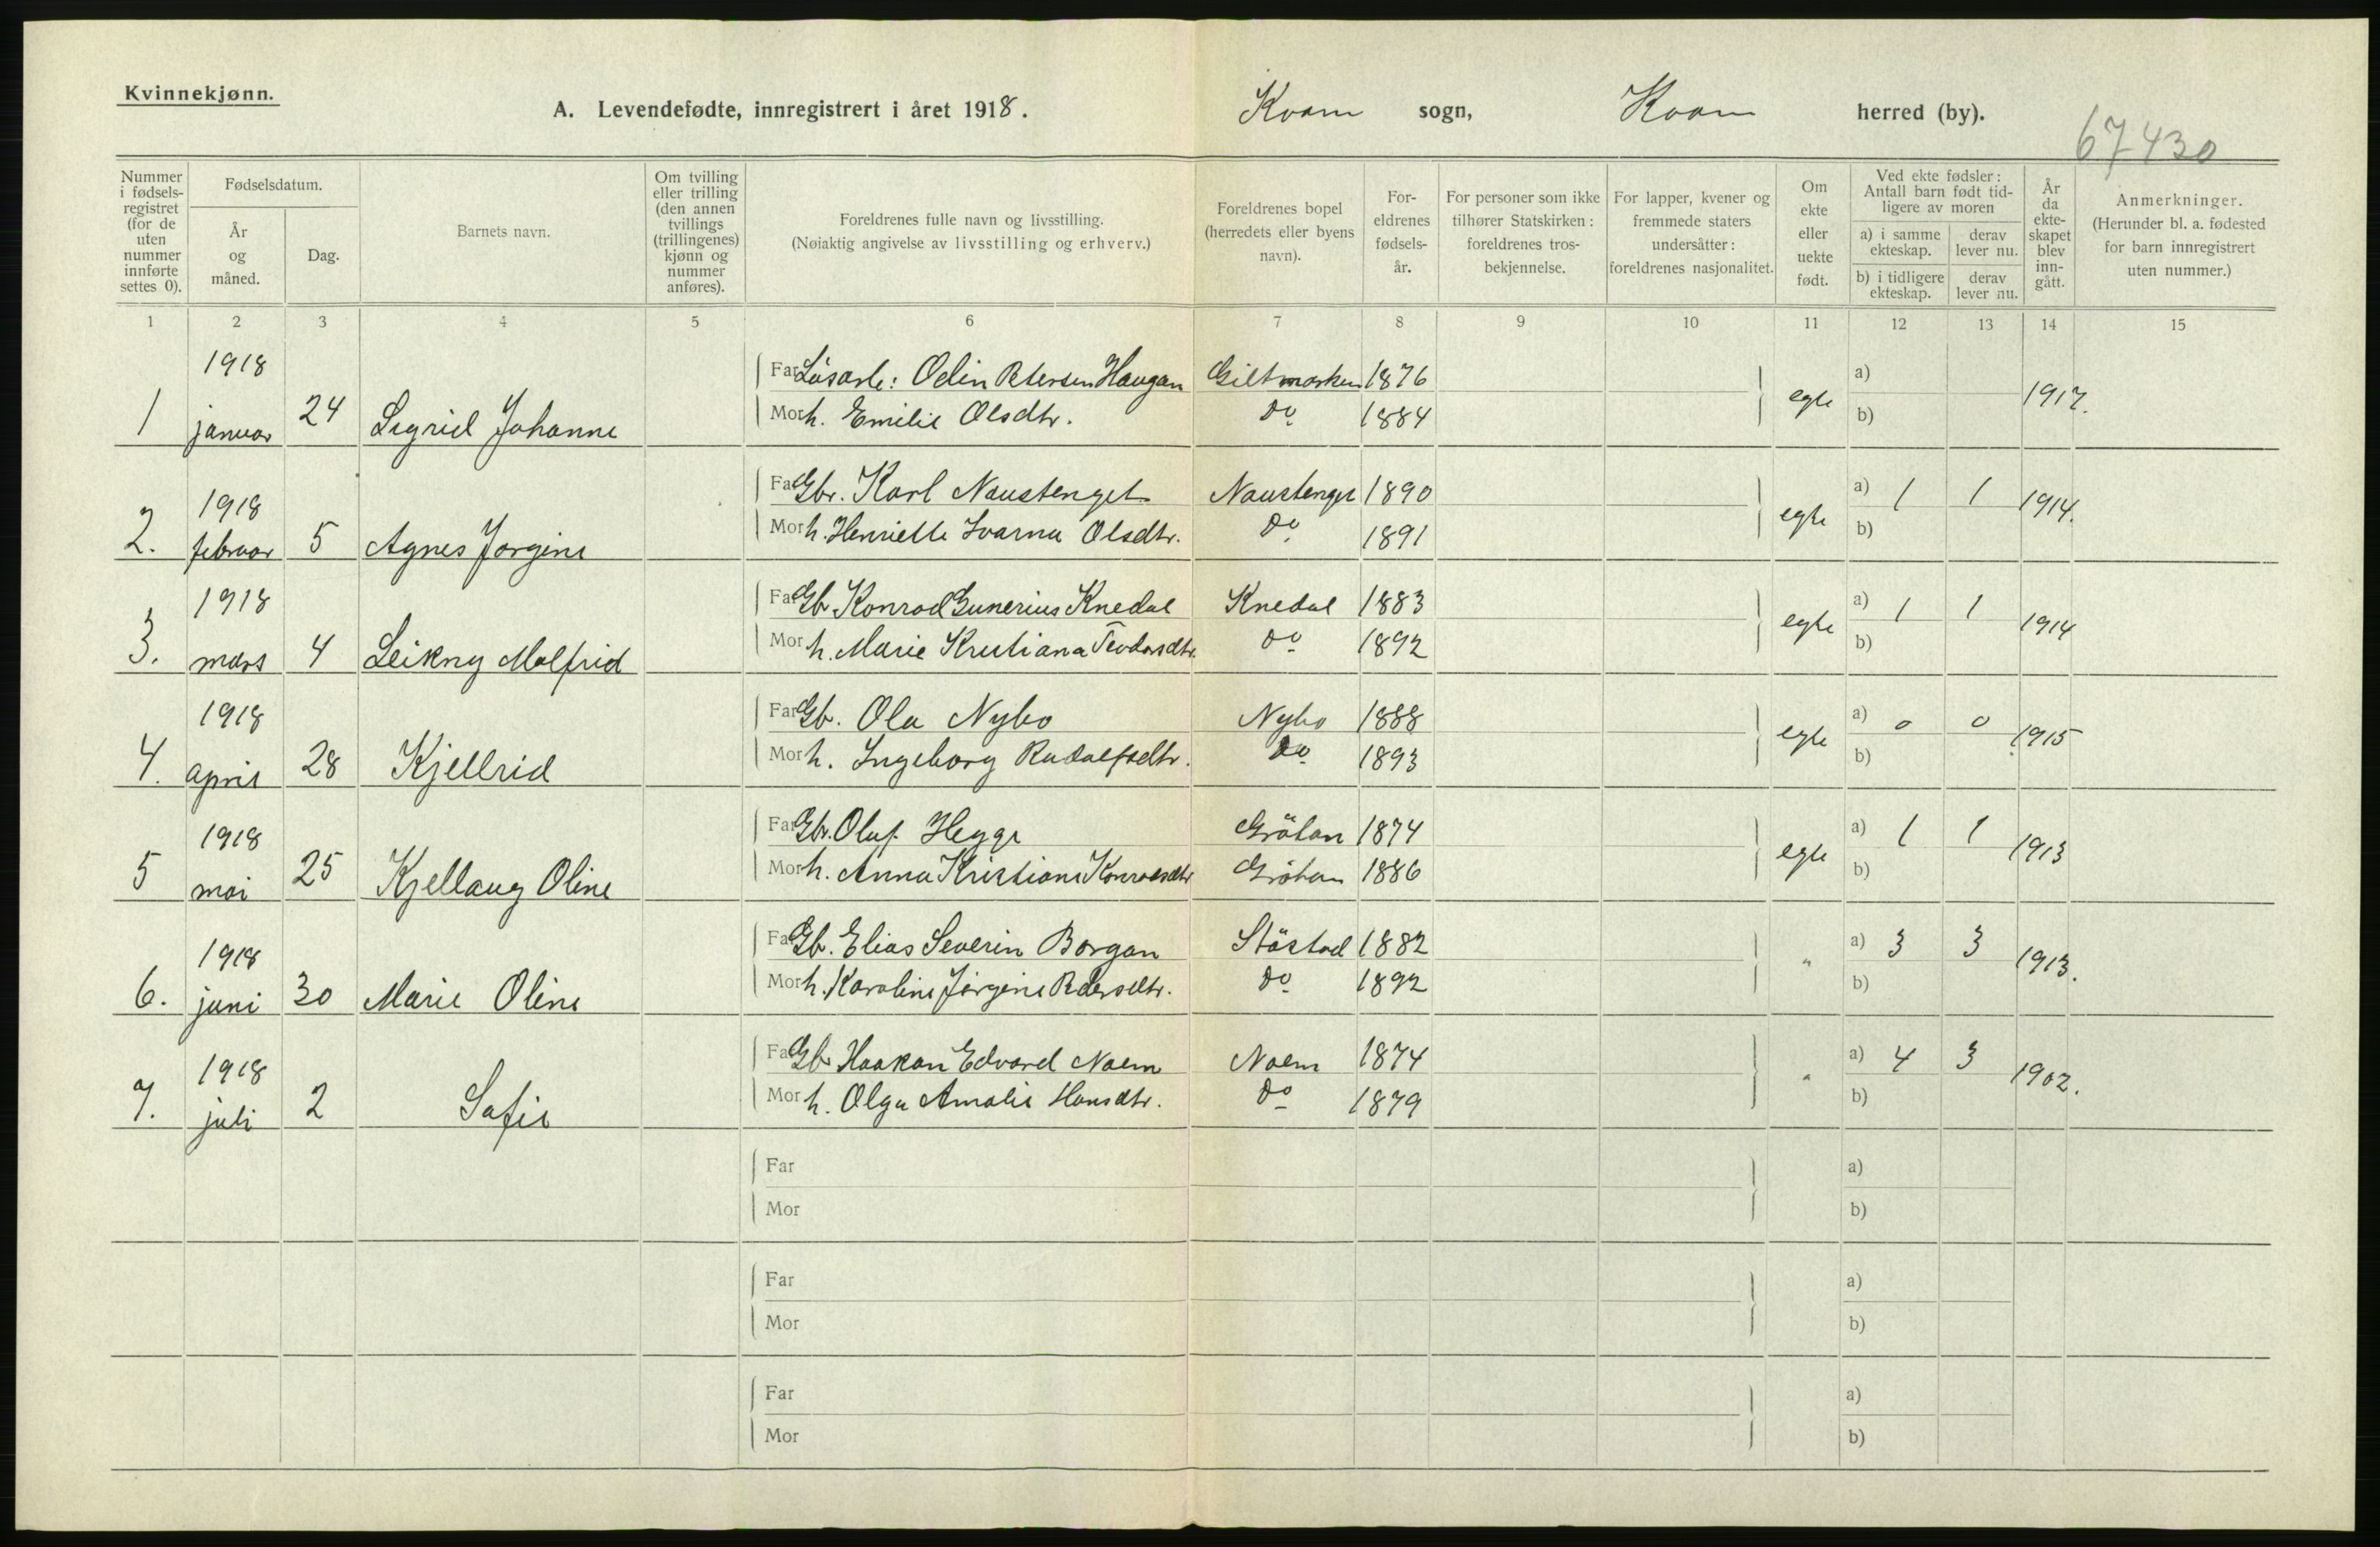 Kvinnekjønn.
A. Levendefødte, innregistrert i året 1918. Kvam sogn, Kvam herred (by).
67430
Nummer i fødsels-registret (for de uten nummer innførte settes 0).
Fødselsdatum.
År og måned.
Dag.
Barnets navn.
Om tvilling eller trilling (den annen tvillings (trillingenes) kjønn og nummer anføres).
Foreldrenes fulle navn og livsstilling.
(Nøiaktig angivelse av livsstilling og erhverv.)
Foreldrenes bopel (herredets eller byens navn).
For-eldrenes fødsels-år.
For personer som ikke tilhører Statskirken: foreldrenes tros-bekjennelse.
For lapper, kvener og fremmede staters undersåtter: foreldrenes nasjonalitet.
Om ekte eller uekte født.
Ved ekte fødsler: Antall barn født tid-ligere av moren
a) i samme ekteskap. derav lever nu.
b) i tidligere ekteskap. derav lever nu.
År da ekte-skapet blev inn-gått.
Anmerkninger.
(Herunder bl. a. fødested for barn innregistrert uten nummer.)
1 2 3 4 5 6 7 8 9 10 11 12 13 14 15
1918 Far Løsarb: Odin Petersen Haugan Giltmarken 1876 a)
1 januar 24 Sigrid Johanne Mor h. Emilie Olsdtr. do 1884 egte b) 1917.
1918 Far Gbr. Karl Naustenget Naustenget 1890 a) 1 1
2. februar 5 Agnes Jorgine Mor h. Henriette Ivarna Olsdtr. do 1891 egte b) 1914.
1918 Far Gb. Konrad Gunerius Knedal Knedal 1883 a) 1 1
3. mars 4 Leikny Malfrid Mor h. Marie Kristiana Teodorsdtr. do 1892 egte b) 1914
1918 Far Gb. Ola Nybo Nybo 1888 a) 0 0
4. april 28 Kjellrid Mor h. Ingeborg Rudolfsdtr. do 1893 egte b) 1915
1918 Far Gbr. Oluf Hegge Gråtan 1874 a) 1 1
5 mai 25 Kjellaug Oline Mor h. Anna Kristiane Konradsdtr Gråtan 1886 egte b) 1913
1918 Far Gb. Elias Severin Borgan Støstad 1882 a) 3 3
6. juni 30 Marie Oline Mor h. Karoline Jørgine Pedersdtr. do 1892 " b) 1913.
1918 Far Gb. Haakon Edvard Noem Noem 1874 a) 4 3
7. juli 2 Sofie Mor h. Olga Amalie Hansdtr. do 1879 " b) 1902.
Far a)
Mor b)
Far a)
Mor b)
Far a)
Mor b)